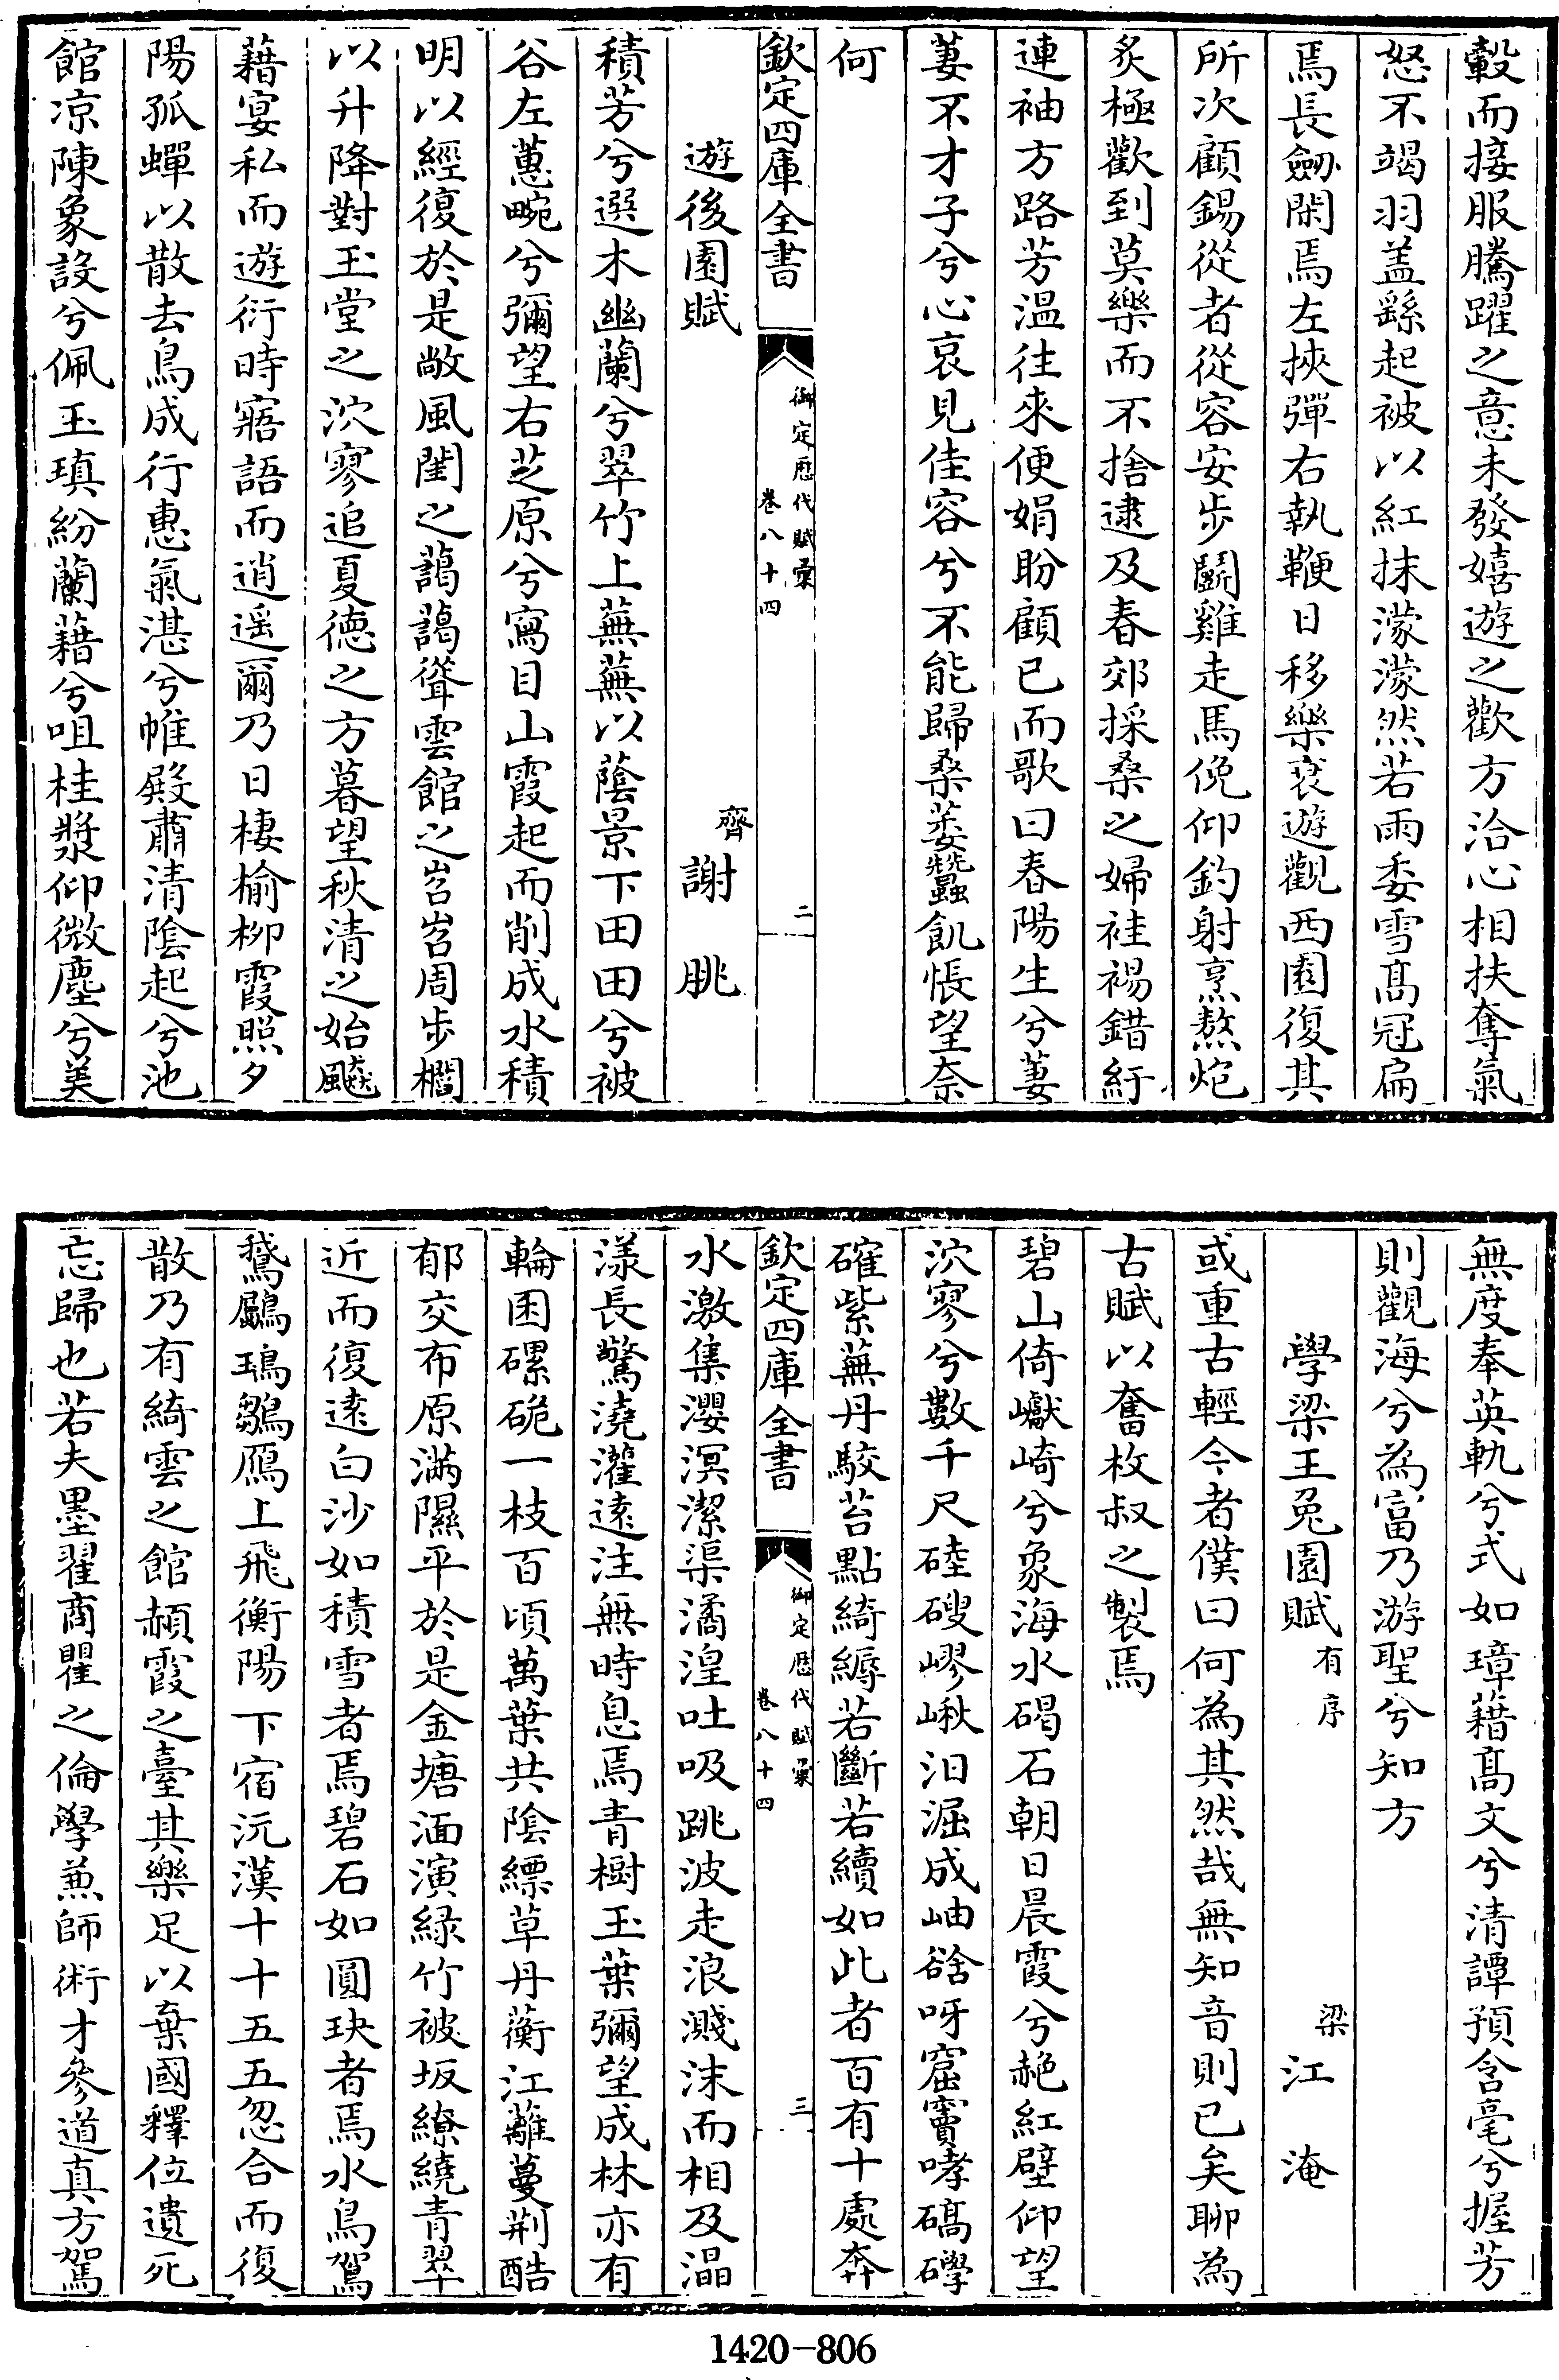 轂而接服騰躍之意未發嬉遊之歡方洽心相扶奪氣
怒不竭羽盖繇起被以紅抹濛濛然若雨委雪髙冠扁
焉長劒閑焉左挾彈右執鞭日移樂衰遊觀西園復其
所次顧錫從者從容安步鬭雞走馬俛仰釣射烹熬炮
炙極歡到莫樂而不捨逮及春郊採桑之婦袿裼錯紆
連袖方路芳温往來便娟盼顧已而歌曰春陽生兮萋
萋不才子兮心哀見佳容兮不能歸桑萎蠶飢悵望奈
何
欽定四庫全書
御定歷代賦彚
卷八十四
二
遊後園賦
齊謝朓
積芳兮選木幽蘭兮翠竹上蕪蕪以蔭景下田田兮被
谷左蕙畹兮彌望右芝原兮寫目山霞起而削成水積
明以經復於是敞風閨之藹藹聳雲館之岧岧周步櫩
以升降對玉堂之泬寥追夏德之方暮望秋清之始飈
藉宴私而遊衍時寤語而逍遥爾乃日棲榆柳霞照夕
陽孤蟬以散去鳥成行惠氣湛兮帷殿肅清陰起兮池
館凉陳象設兮佩玉瑱紛蘭藉兮咀桂漿仰微塵兮美
無度奉英軌兮式如璋藉髙文兮清譚預含毫兮握芳
則觀海兮為富乃游聖兮知方
學梁王兔園賦有序
梁江淹
或重古輕今者僕曰何為其然哉無知音則已矣聊為
古賦以奮枚叔之製焉
碧山倚巘崎兮象海水碣石朝日晨霞兮赩紅壁仰望
泬寥兮數千尺碐磳嵺㟋汨淈成岫㟏呀窟竇哮碻礐
確紫蕪丹駮苔點綺縟若斷若續如此者百有十處奔
欽定四庫全書
御定歷代賦彚
卷八十四
三
水激集瀴溟潔渠潏湟吐吸跳波走浪濺沫而相及㵽
漾長驚澆灌遠注無時息焉青樹玉葉彌望成林亦有
輪囷磥硊一枝百頃萬葉共陰縹草丹蘅江蘺蔓荆酷
郁交布原滿隰平於是金塘湎演緑竹被坂繚繞青翠
近而復遠白沙如積雪者焉碧石如圓玦者焉水鳥駕
鵞鸓鵶鶵鴈上飛衡陽下宿沅漢十十五五忽合而復
散乃有綺雲之館頳霞之臺其樂足以棄國釋位遺死
忘歸也若夫墨翟商瞿之倫學兼師術才參道真方駕
1420-806